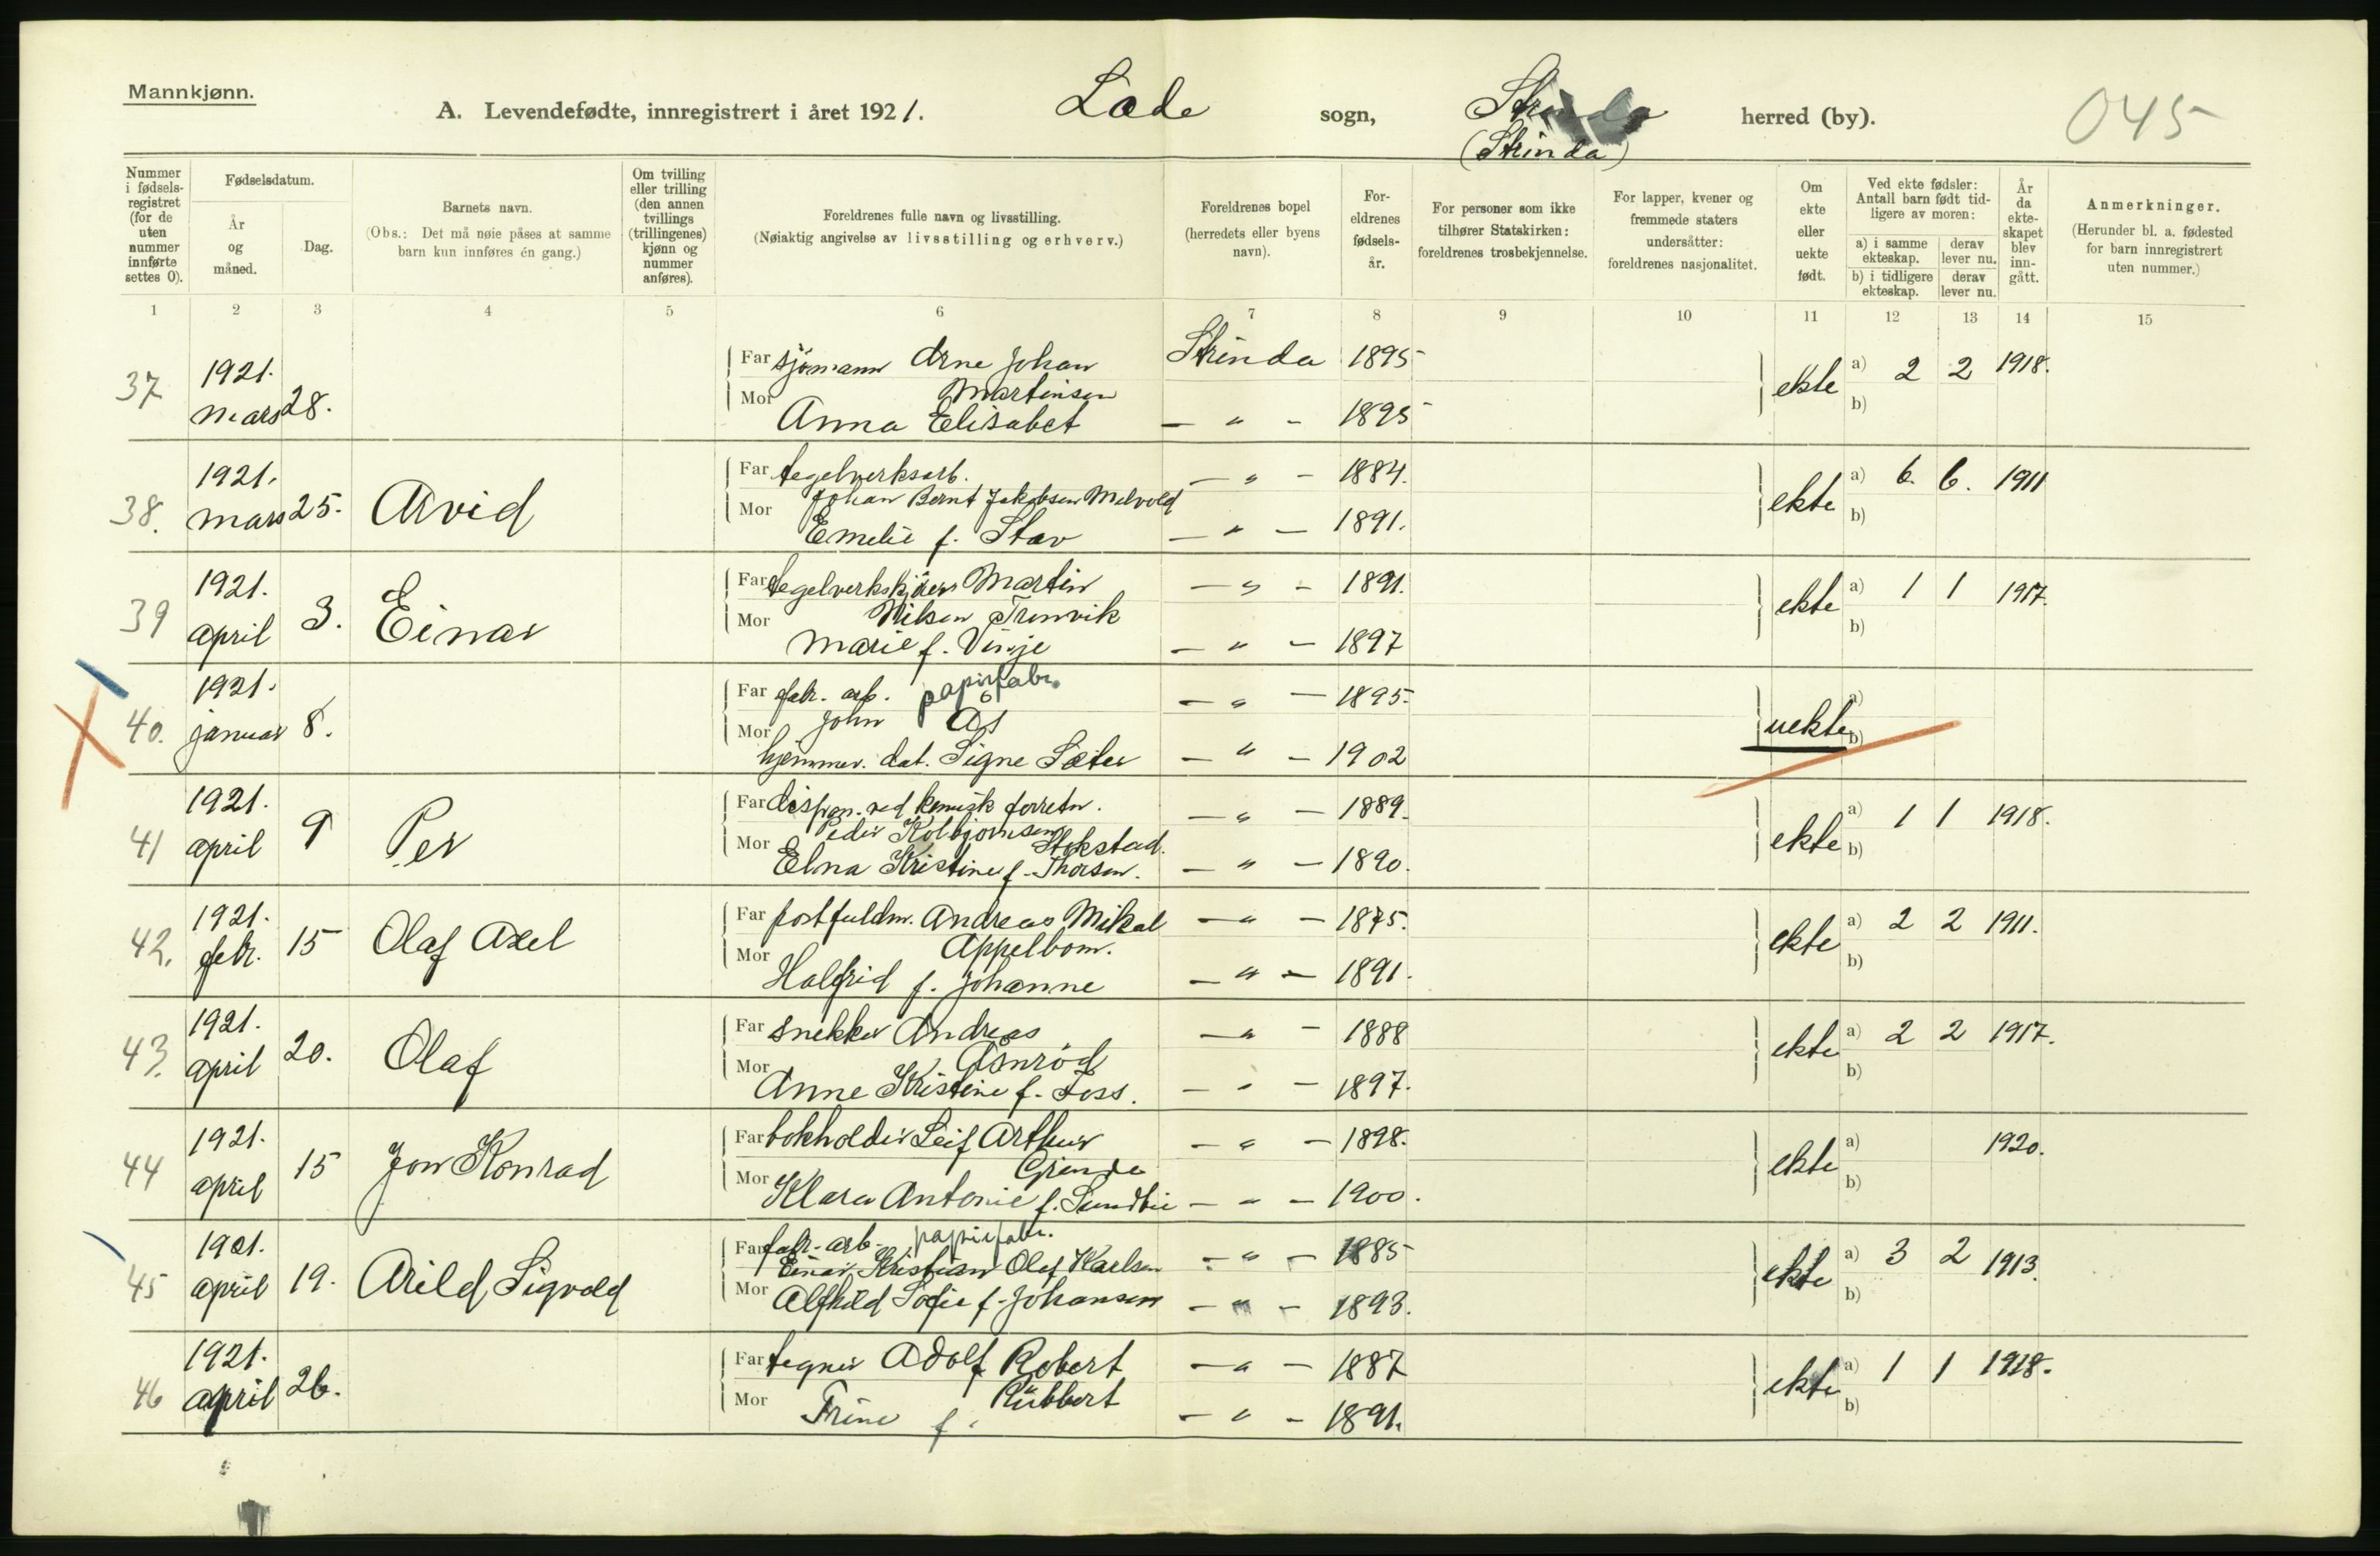 Mannkjønn.
A. Levendefødte, innregistrert i året 1921. Lade sogn, Strinda herred (by). 045
(Strinda)
Nummer i fødselsregistret (for de uten nummer innførte settes 0).
Fødselsdatum.
År og måned.
Dag.
Barnets navn.
(Obs.: Det må nøie påses at samme barn kun innføres én gang.)
Om tvilling eller trilling (den annen tvillings (trillingenes) kjønn og nummer anføres).
Foreldrenes fulle navn og livsstilling.
(Nøiaktig angivelse av livsstilling og erhverv.)
Foreldrenes bopel (herredets eller byens navn).
Foreldrenes fødselsår.
For personer som ikke tilhører Statskirken: foreldrenes trosbekjennelse.
For lapper, kvener og fremmede staters undersåtter: foreldrenes nasjonalitet.
Om ekte eller uekte født.
Ved ekte fødsler: Antall barn født tidligere av moren:
a) i samme ekteskap. derav lever nu.
b) i tidligere ekteskap. derav lever nu.
År da ekteskapet blev inngått.
Anmerkninger.
(Herunder bl. a. fødested for barn innregistrert uten nummer.)
1 2 3 4 5 6 7 8 9 10 11 12 13 14 15
37 1921. mars 28. Far sjømann Arne Johan Martinsen Strinda 1895 ekte a) 2 2 1918.
Mor Anna Elisabet — " - 1895 b)
38. 1921. mars 25. Arvid Far tegelverksarb. Johan Bernt Jakobsen Melvold — " - 1884. ekte a) 6. 6. 1911
Mor Emelie f. Stav — " — 1891. b)
39 1921. april 3. Einar Far tegelverkskjører Martin Nilsen Trenvik — " - 1891. ekte a) 1 1 1917.
Mor Marie f. Vinje — " — 1897 b)
40. 1921. januar 8. Far fabr. arb. papirfabr. John Ås — " — 1895. uekte a)
Mor hjemmev. dat. Signe Sæter — " — 1902 b)
41 1921. april 9 Per Far dispon. ved kemisk forretn. Peder Kolbjørnsen Stokstad. — " — 1889. ekte a) 1 1 1918.
Mor Elna Kristine f. Thorsen. — " — 1890. b)
42. 1921. febr. 15 Olaf Axel Far postfuldm. Andreas Mikal Appelbom. — " — 1875. ekte a) 2 2 1911.
Mor Halfrid f. Johanne — " — 1891. b)
43. 1921. april 20. Olaf Far snekker Andreas Åsnrød — " - 1888 ekte a) 2 2 1917.
Mor Anne Kristine f. Foss. — " — 1897. b)
44 1921. april 15 Jon Konrad Far bokholder Leif Arthur Grande — " — 1898. ekte a) 1920.
Mor Klara Antonie f. Sundlie — " — 1900. b)
45 1921. april 19. Arild Sigvald Far fabr. arb. papirfabr. Einar Kristian Olaf Karlsen — " — 1885 ekte a) 3 2 1913.
Mor Alfhild Sofie f. Johansen — " — 1893. b)
46 1921. april 26. Far tegner Adolf Robert Rübbert — " — 1887 ekte a) 1 1 1918.
Mor Trine f. — " - 1891. b)